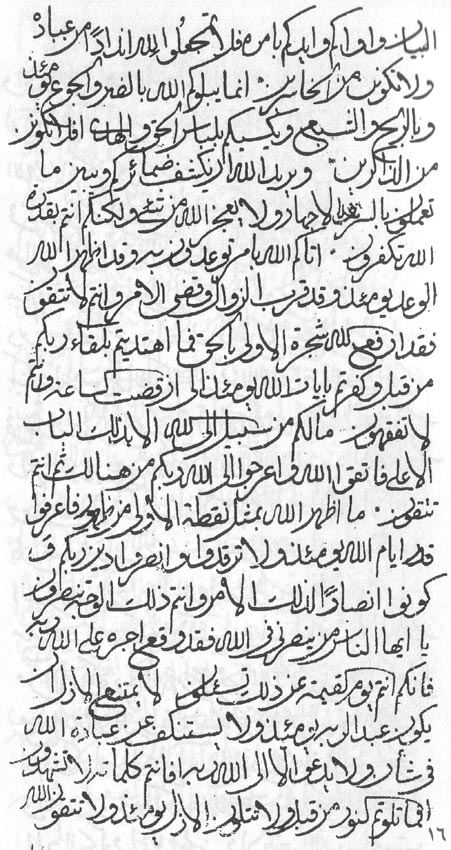 البيان واواكم وايدكم بامره فلا تجعلوا لله اندادا من عباده
ولا تكونن من الخاسرين انما يبلوكم الله بالضر والجوع يومئذ
وبالريح والشبع ويكسيكم بلباس الحق والهدى افلا تكونن
من الذاكرين ويريد الله ان يكشف ضمائركم ويبين ما
تعملون بالسر والاجهار ولا يعجز الله من شيء ولكنكم انتم بقدرة
الله تكفرون اتاكم الله بامر توعدون به وقد اظهر الله
الوعد يومئذ وقد قرب الزوال وقضى الامر وانتم لا تتقون
فقد ارفع لله شجرة الاولى بالحق فما اهتديتم بلقاء ربكم
من قبل وكفرتم بايات الله يومئذ الى ان قضت الساعة وانتم
لا تفقهون ما لكم من سبيل الى الله الا بذلك الباب
الاعلى فاتقوا الله واعرجوا الى الله ربكم من هنالك ثم انتم
تتقون ما اظهر الله بمثل نقطة الاولى من ظهور فاعرفوا
قدر ايام الله يومئذ ولا ترقدوا وانصروا دين ربكم و
كونوا انصارا لذلك الامر وانتم ذلك الوجه تنصرون
يا ايها الناس من ينصرني في الله فقد وقع اجره على الله ربه
فانكم انتم يوم القيمة عن ذلك تسئلون لا يمتنع الازل ان
يكون عبدا لربه يومئذ ولا يستنكف عن عبادة الله
في شأن ولا يدعوا الا الى الله ربه افانتم كلماته لا تشهدون
افما تلوتم كنود من قبل ولا تتلون الازل يومئذ ولا تتقون الله
١٦